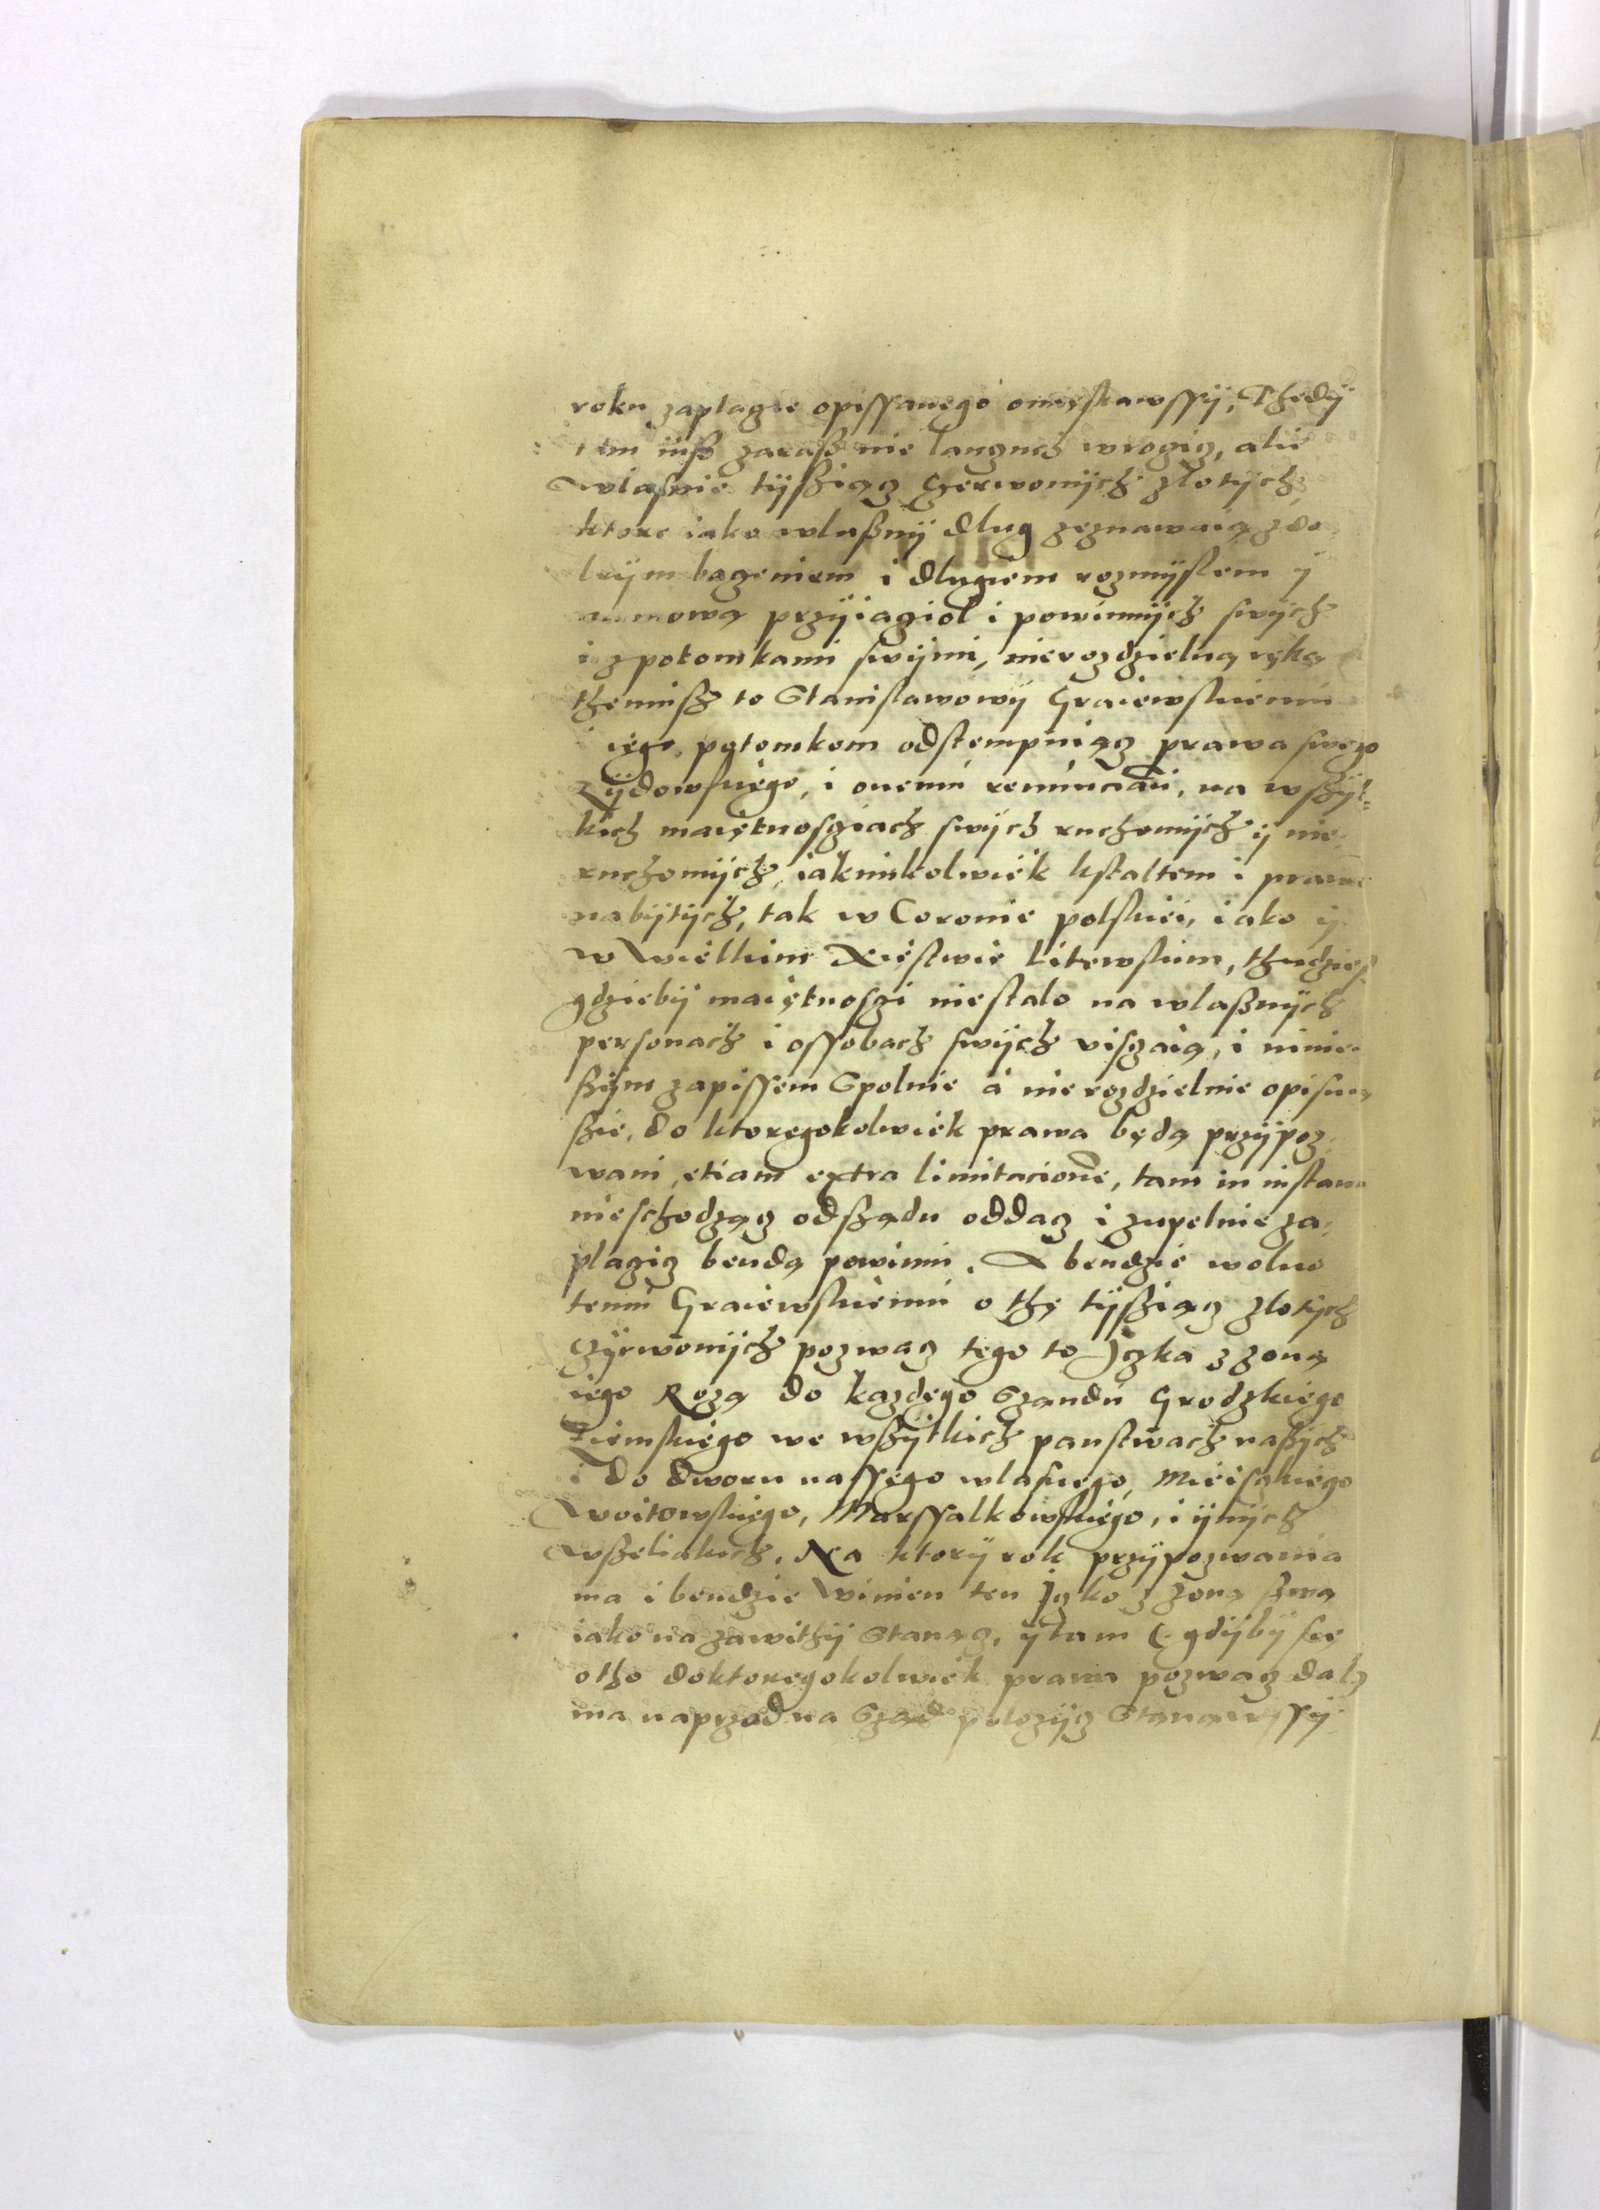 roku zaplacie opissanego omięskawssÿ, Thedÿ
iusz zarasz nie lancuch wrociz, alie
wlasnie tÿsziącz czerwonÿch zlotÿch,
ktore iako wlasznÿ dlug zeznawaią zdo
brÿm baczeniem i dlugiem rozmÿslem ÿ
namową przÿiaciol i powinnÿch swÿch
i zpotomkami swÿmi, nierozdzielną ręką
themusz to Stanislawowÿ Graiewskiemu
i iego potomkom odstempuiącz prawa swego
Zÿdowskiego, i onemu renunciaui, na wszÿt=
kich maiętnosciach swÿch ruchomÿch ÿ nie
ruchomÿch, iakimkolwiek kstaltem i prawe
nabÿtÿch, tak w Coronie polskiei, iako ÿ
w Wielkim Xięstwie Litewskim, thudziesz
gdziebÿ maiętnosci niestalo na wlasznÿch
personach i ossobach swÿch visczaią, i ninie
szÿm zapissem Spolnie a nierozdzielnie opisuią
szie, do ktoregokolwiek prawa będą przÿpoz
wani, etiam extra limitacione, tam in instanti
nieschodząc odsządu oddacz i zupelnie za
placicz bendą powinni. A bendzie wolno
temu Graiewskiemu o thę tÿsziącz zlotÿch
czÿrwonÿch pozwacz tego to Jczka z zoną
iego Rozą do kazdego Szandu Grodzkiego
Ziemskiego we wszÿtkich panstwach naszÿch
i do dworu nassego wlasnego, Mieisckiego
Woitowskiego, Marssalkowskiego, i ÿnÿch
wszeliakich. Na ktorÿ rok przÿpozwania
ma i bendzie winien ten Jczko z zoną szwą
iako na zawithÿ Stanącz, ÿ tam (gdÿbÿ się
otho doktoregokolwiek prawa pozwacz dalz
ma naprzod na Sząd polozÿcz Stanąwssÿ